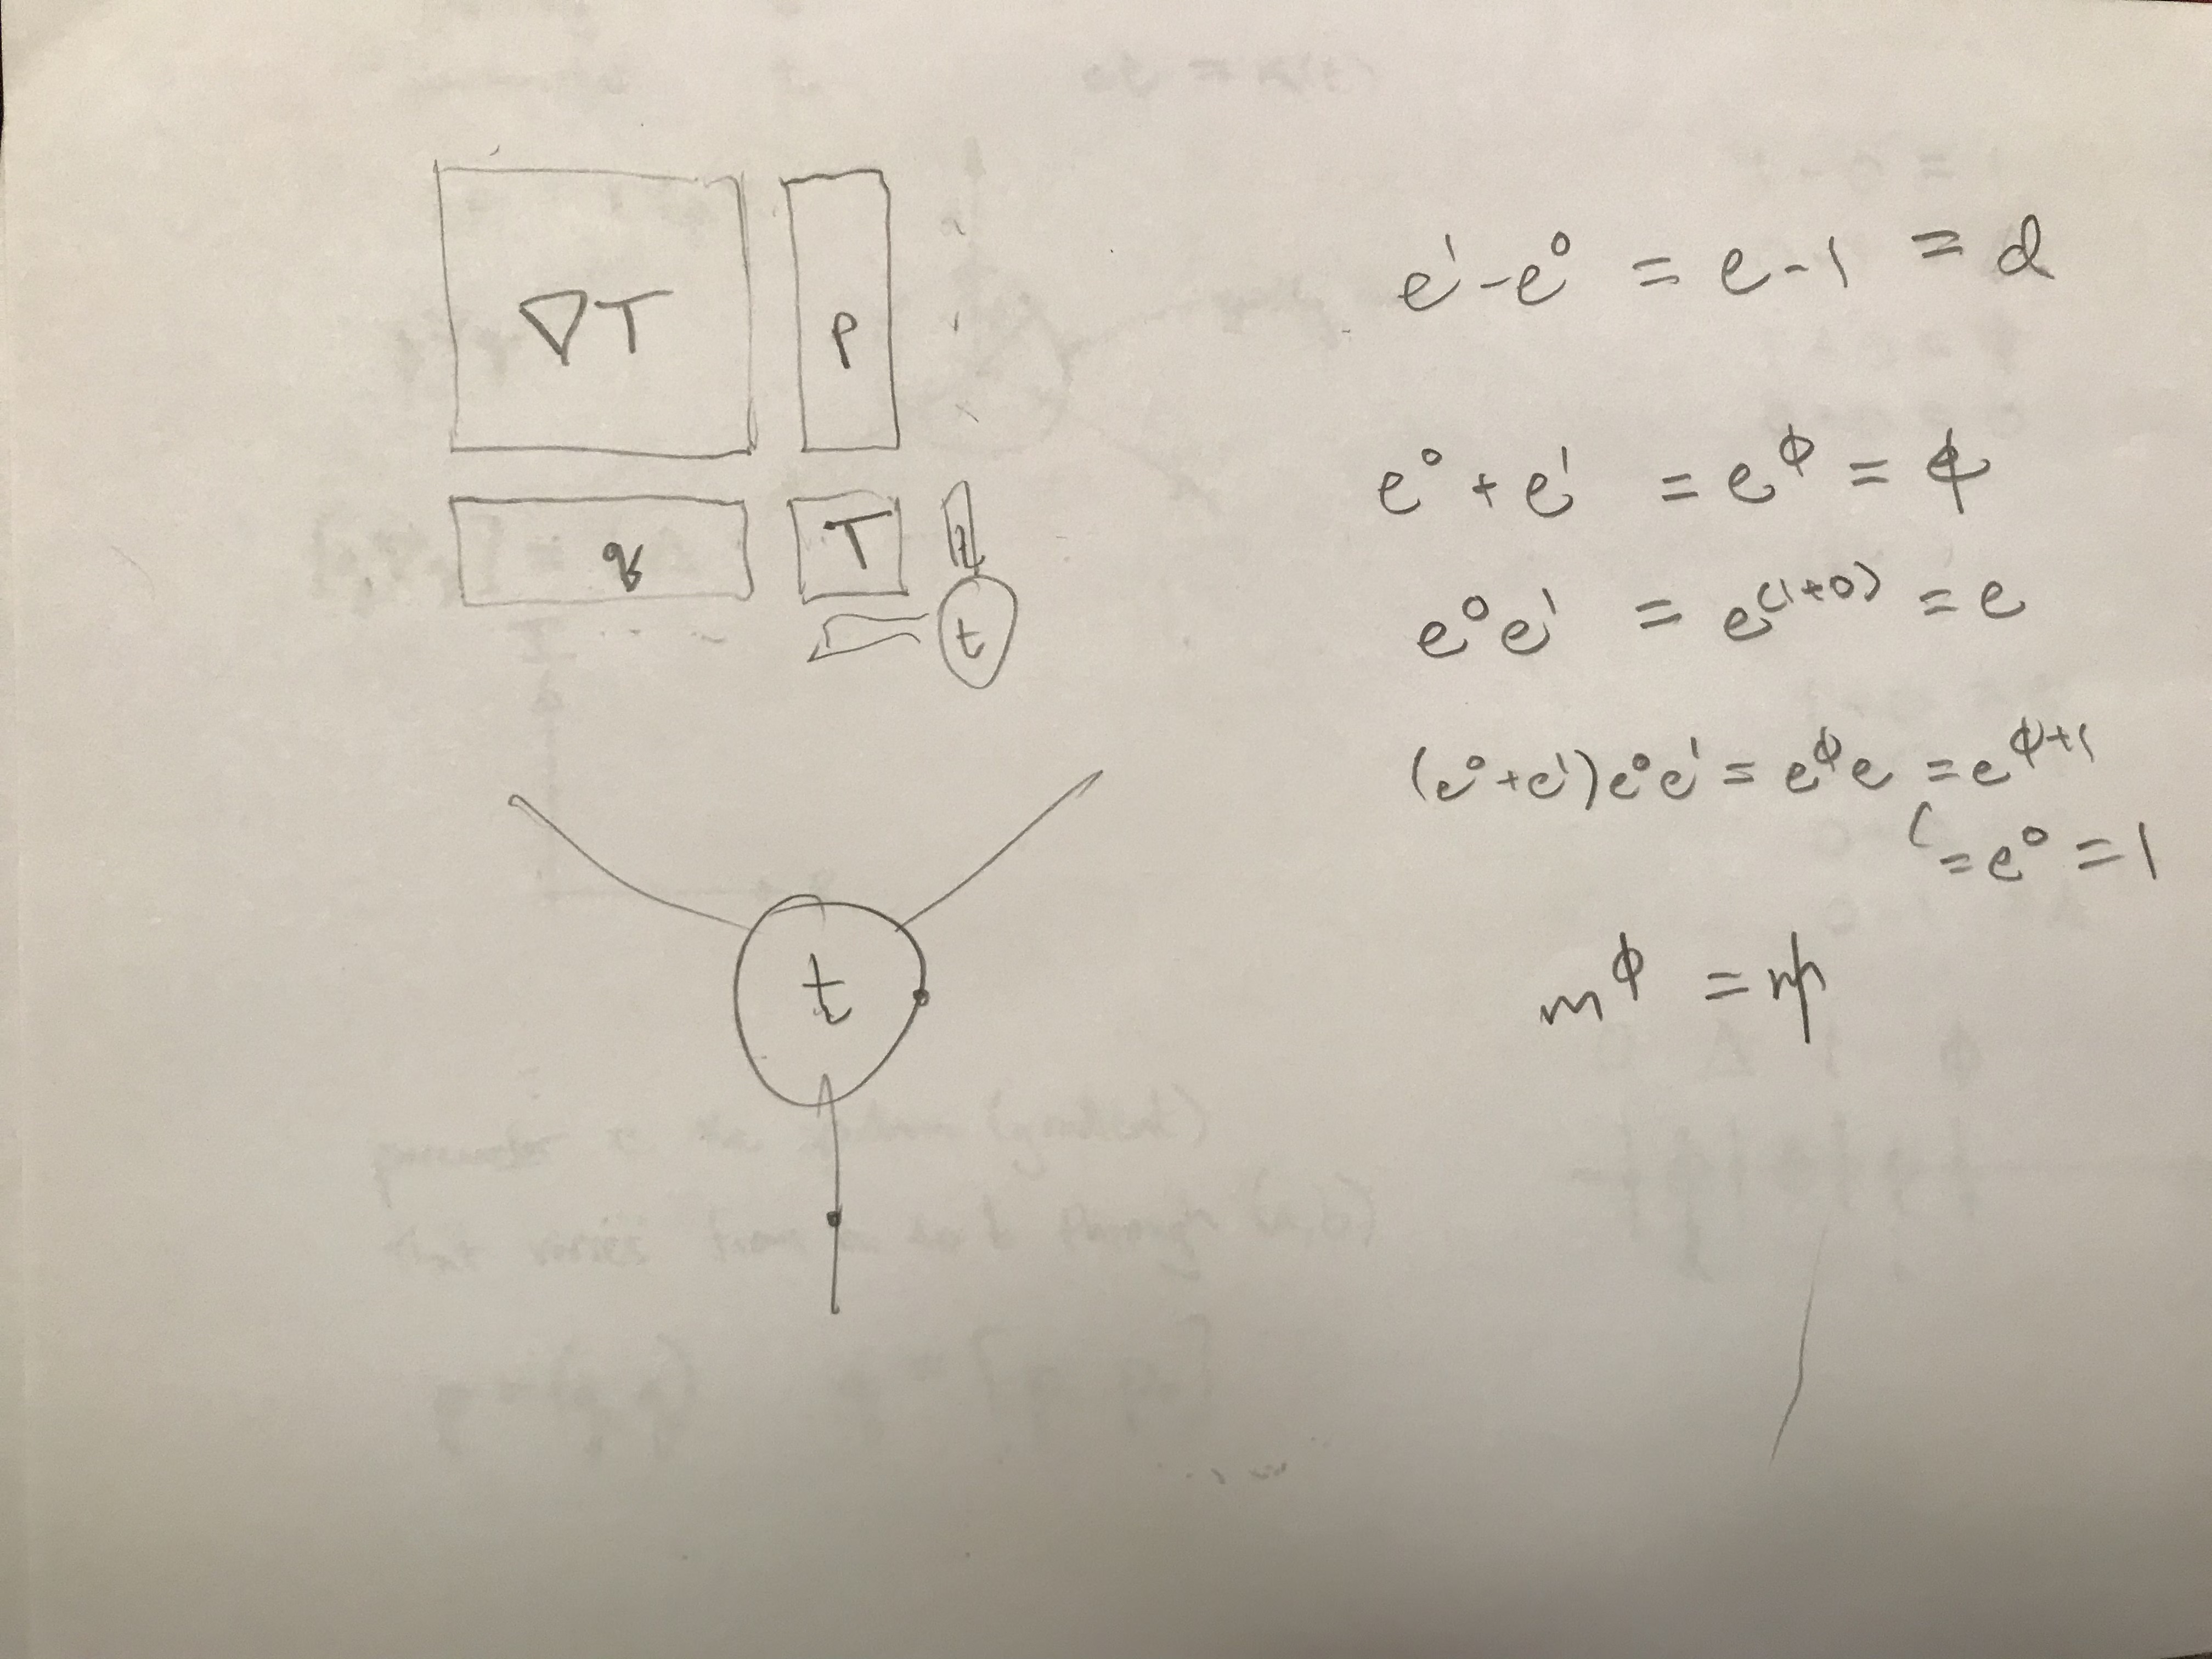 ∇T
p
q
T
t
t
e¹ - e⁰ = e - 1 = d
e⁰ + e¹ = e^ϕ =
e⁰e¹ = e^(1+0) = e
(e⁰+e¹)e⁰e¹ = e^ϕ e = e^(ϕ+1)
= e⁰ = 1
m^ϕ =